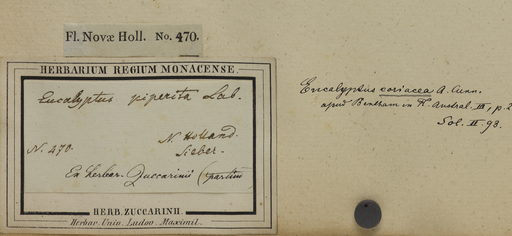 Fl. Novæ Holl. No. 470.
HERBARIUM REGIUM MONACENSE.
Eucalyptus piperita Lab.
N. Holland.
N. 470.
Sieber.
Ex herbar. Zuccarinii (partim
HERB. ZUCCARINII.
Herbar. Univ. Ludov. Maximil.
Eucalyptus coriacea A. Cunn.
apud Bentham in Fl. Austral. III, p. 2
Sol. II 93.